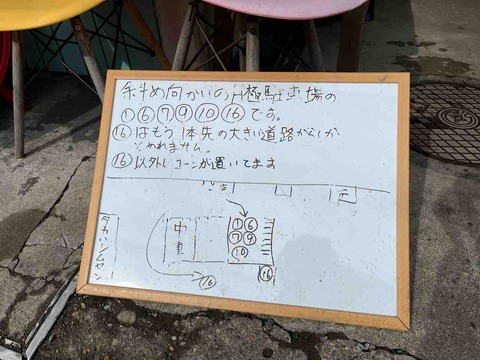 斜め向かいの月極駐車場の
①⑥⑦⑨⑩⑯です。
⑯はもう1本先の大きい道路からしか
とめれません。
⑯以外はコーンが置いてます
タカハシムセン
中華
①⑥
⑦⑨
⑩
⑯
⑯